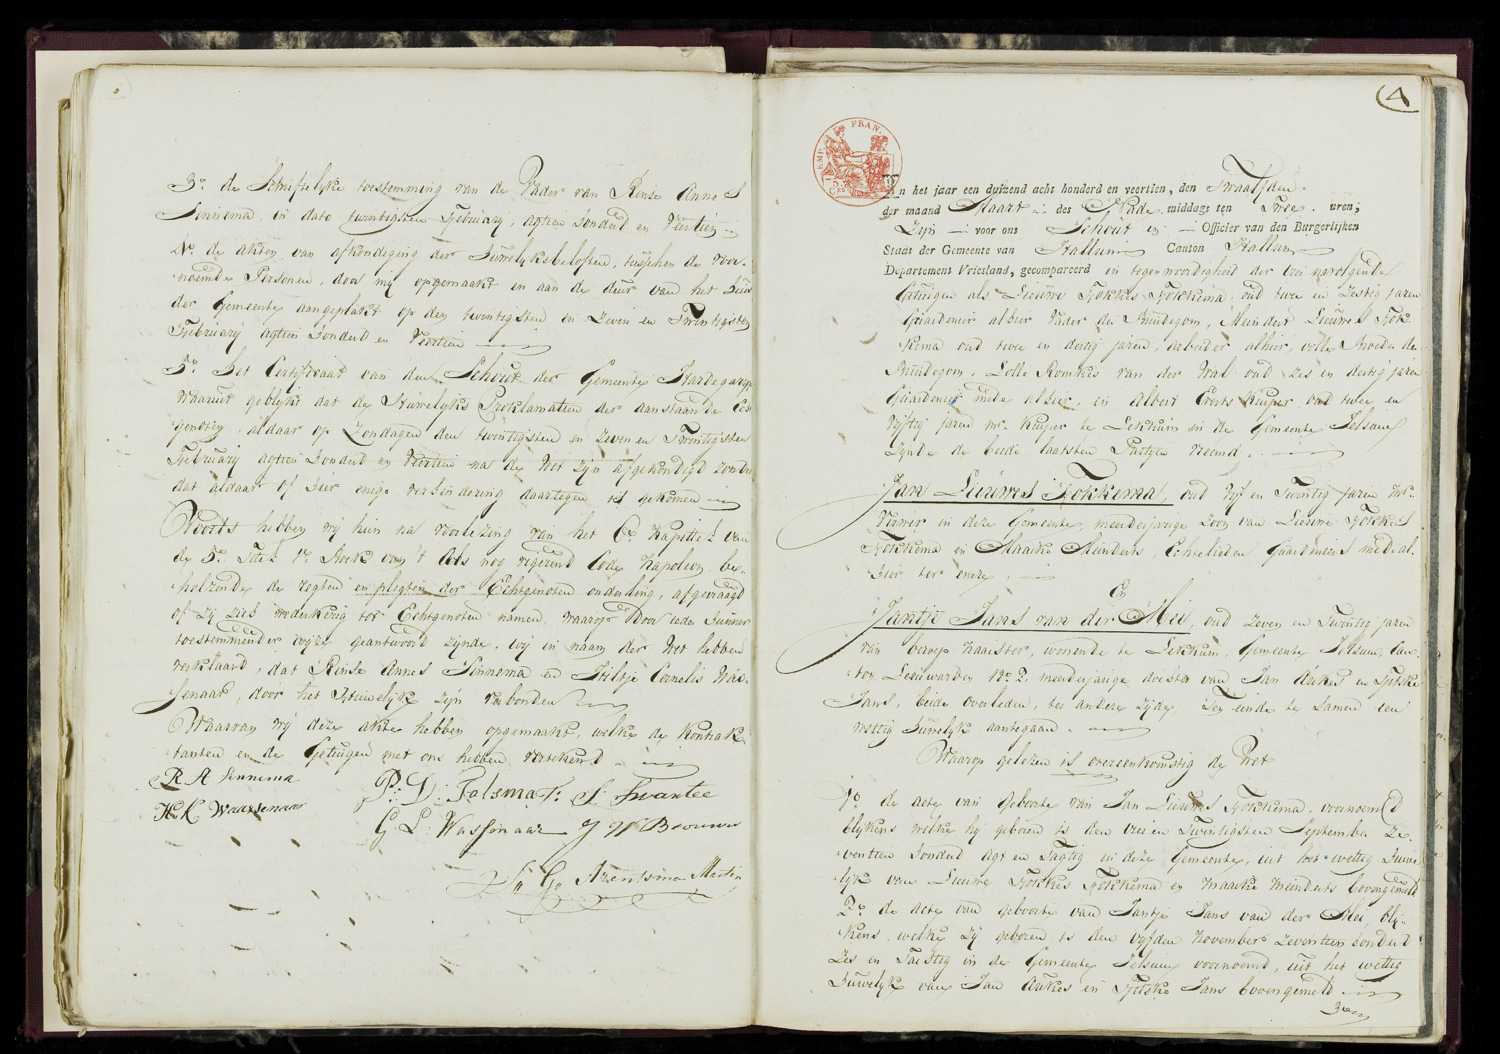 3o. de Schriftelyke toestemming van de Vader van Rinse Annes
Sinnema, in dato twintigsten February, agtien honderd en Veertien
4o. de akten van afkondiging der Huwelyksbeloften, tusschen de voor-
noemde Personen, door mij opgemaakt en aan de deur van het Huis
der Gemeente aangeplakt op den twintigsten en Zeven en Twintigsten
February agtien honderd en Veertien
5o. Het Certificaat van den Schout der Gemeente Hardegaryp
Waaruit geblykt dat de Huwelyks Proklamatien der aanstaande Ech
genoten, aldaar op Zondagen den twintigsten en zeven en Twintigsten
February agtien honderd en Veertien na de Wet zijn afgekondigd zonder
dat aldaar of hier enige verhindering daartegen is gekomen
Voorts hebben wij hun na voorlezing van het 6e Kapittel van
de 5e Titel 1e Boek van 't als nog regerend Code Napoleon, be-
helzende de regten en pligten der Echtgenoten onderling, afgevraagd
of zij zich wederkerig tot Echtgenoten namen, waarop Door ieder hunner
toestemmender wijze geantwoord zijnde, wij in naam der Wet hebben
verklaard, dat Rinse Annes Sinnema en Hiltje Cornelis Was-
senaar, door het Huwelyk zijn verbonden
Waarvan wij deze akte hebben opgemaakt, welke de Kontrak-
tanten en de Getuigen met ons hebben vertekend
R A Sinnema
P: D: Talsma T: S: Swartee
H K Wassenaar
G L: Wassenaar J W Brouwer
Arentsma Martin
4
EMP. FRAN.
In het jaar een duizend acht honderd en veertien, den Twaalfden
der maand Maart des Nade middags ten Twee uren;
Zijn voor ons Schout en Officier van den Burgerlijken
Staat der Gemeente van Hallum Canton Hallum
Departement Vriesland, gecompareerd in tegenwoordigheid der vier navolgende
Getuigen als Lieuwe Fokkes Fokkema, oud twee en zestig jaren
Gardenier alhier Vader des Bruidegom, Meindert Lieuwes Fok-
kema oud twee en dertig jaren, arbeider alhier, volle Broeder des
Bruidegom, Lolle Romkes van der Wal oud zes en dertig jaren
Gardenier mede alhier, en Albert Everts Kuiper oud twee en
Vijftig jaren mr. Kuiper te Lekkum in de Gemeente Jelsum
Zijnde de beide laatsten Partijen Vreemd.
Jan Lieuwes Fokkema, oud Vijf en Twintig jaren In-
Woner in deze Gemeente, meerderjarige Zoon van Lieuwe Fokkes
Fokkema en Maaike Meinderts Echtelieden Gardeniers mede al-
hier ter eenre.
En
Jantje Jans van der MeI, oud zeven en Twintig jaren
van beroep Naaister, wonende te Lekkum, Gemeente Jelsum, Can-
ton Leeuwarden No 2. meerderjarige dochter van Jan Aukes en Tjitske
Jans, beide overleden, ter andere zijde Ten einde te Samen een
wettig Huwelyk aantegaan.
Waarop gelezen is overeenkomstig de Wet
1o. de acte van Geboorte van Jan Lieuwes Fokkema, voornoemd
blykens welke hy geboren is den vier en Twintigsten September Ze-
ventien honderd Agt en Tagtig in deze Gemeente, uit het wettig Huwe-
lyk van Lieuwe Fokkes Fokkema en Maaike Meinderts bovengemeld
2o. de acte van geboorte van Jantje Jans van der Mei bly-
kens welke zij geboren is den vyfden November zeventien honderd
zes en Tachtig in de Gemeente Jelsum voornoemd, uit het wettig
Huwelyk van Jan Aukes en Tjitske Jans bovengemeld
3o.